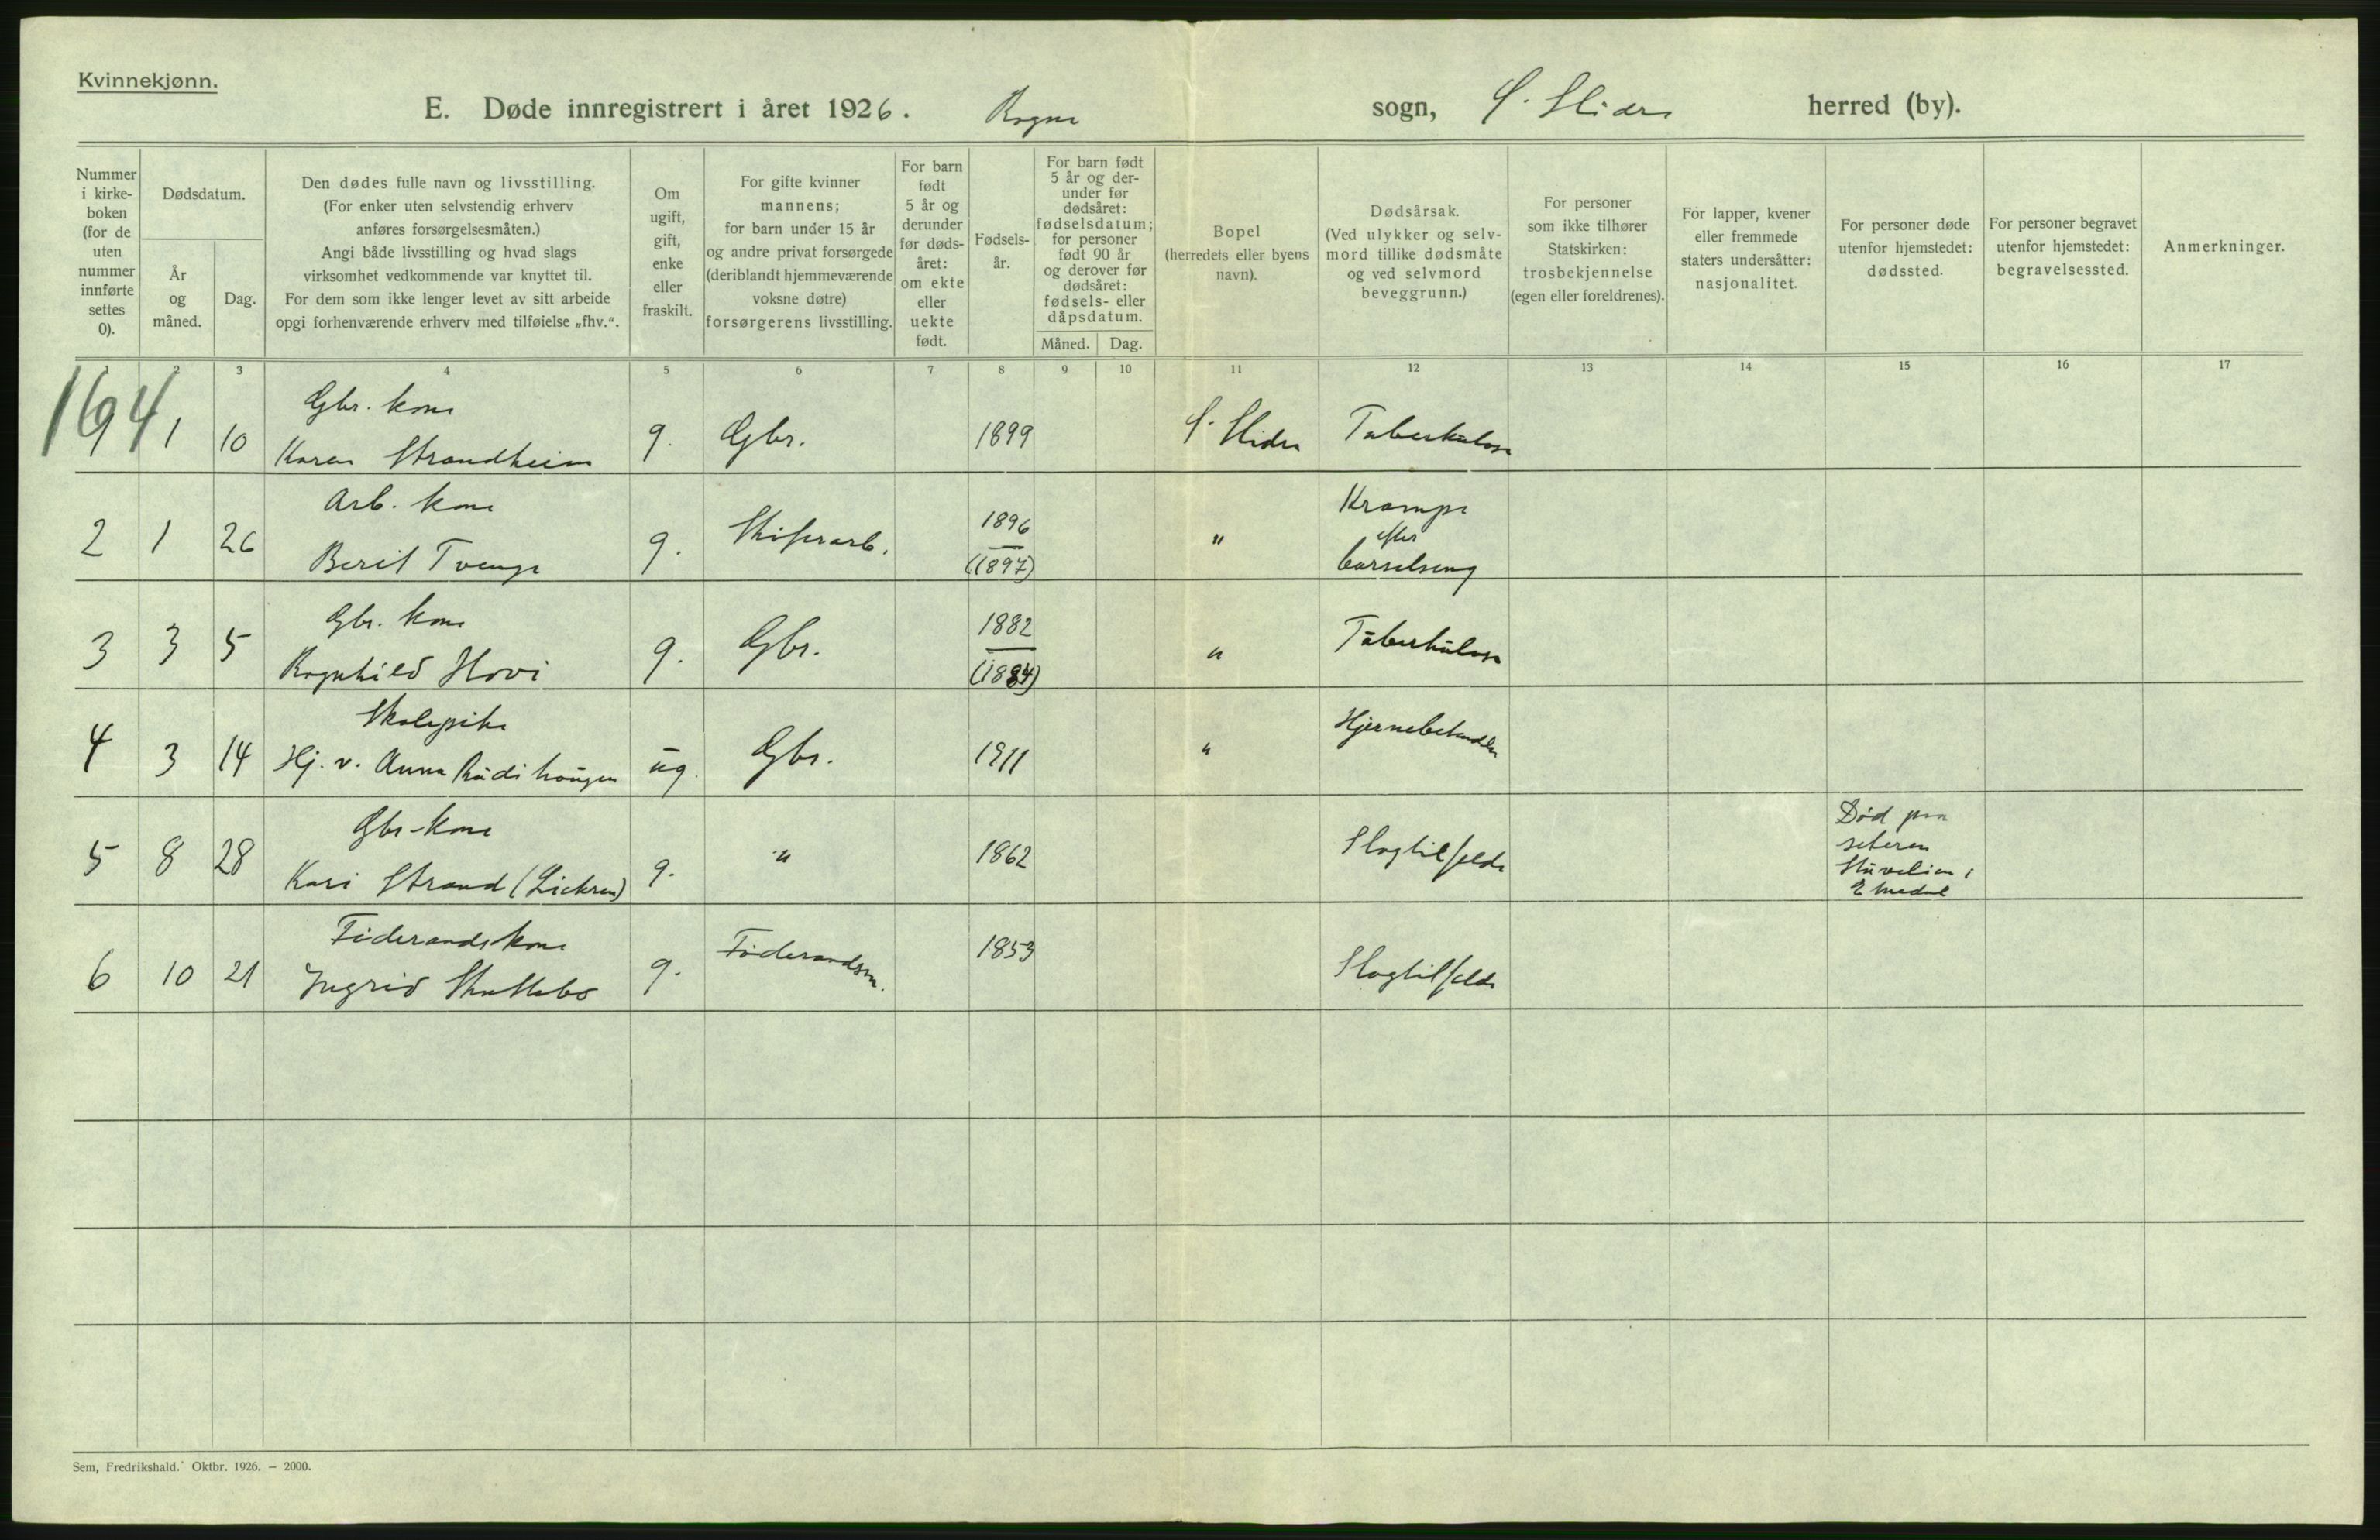 Kvinnekjønn.
E. Døde innregistrert i året 1926. Rogne sogn, S. Slidre herred (by).
Nummer
i kirke-
boken
(for de
uten
nummer
innførte
settes
0).
Dødsdatum.
År
og
måned.
Dag.
Den dødes fulle navn og livsstilling.
(For enker uten selvstendig erhverv
anføres forsørgelsesmåten.)
Angi både livsstilling og hvad slags
virksomhet vedkommende var knyttet til.
For dem som ikke lenger levet av sitt arbeide
opgi forhenværende erhverv med tilføielse „fhv.“.
Om
ugift,
gift,
enke
eller
fraskilt.
For gifte kvinner
mannens;
for barn under 15 år
og andre privat forsørgede
(deriblandt hjemmeværende
voksne døtre)
forsørgerens livsstilling.
For barn
født
5 år og
derunder
før døds-
året:
om ekte
eller
uekte
født.
Fødsels-
år.
For barn født
5 år og der-
under før
dødsåret:
fødselsdatum;
for personer
født 90 år
og derover før
dødsåret:
fødsels- eller
dåpsdatum.
Måned. Dag.
Bopel
(herredets eller byens
navn).
Dødsårsak.
(Ved ulykker og selv-
mord tillike dødsmåte
og ved selvmord
beveggrunn.)
For personer
som ikke tilhører
Statskirken:
trosbekjennelse
(egen eller foreldrenes).
For lapper, kvener
eller fremmede
staters undersåtter:
nasjonalitet.
For personer døde
utenfor hjemstedet:
dødssted.
For personer begravet
utenfor hjemstedet:
begravelsessted.
Anmerkninger.
1 2 3 4 5 6 7 8 9 10 11 12 13 14 15 16 17
1694
Gbr. kone
1 10 Karen Strandheim g. Gbr. 1899 S. Slidre Tuberkulose
Arb. kone
2 1 26 Berit Tvenge g. Skiferarb. 1896
(1897) " Krampe
efter
barselseng
Gbr. kone
3 3 5 Ragnhild Hovi g. Gbr. 1882
(1884) " Tuberkulose
Skolepike
4 3 14 Hj. v. Anna Rudihaugen ug. Gbr. 1911 " 
Gbr-kone
5 8 28 Kari Strand g. " 1862 Slagtilfelde
Død paa
seteren
i
Føderandskone
6 10 21 Ingrid g. Føderandsm. 1853 Slagtilfelde
Sem, Fredrikshald. Oktbr. 1926. — 2000.